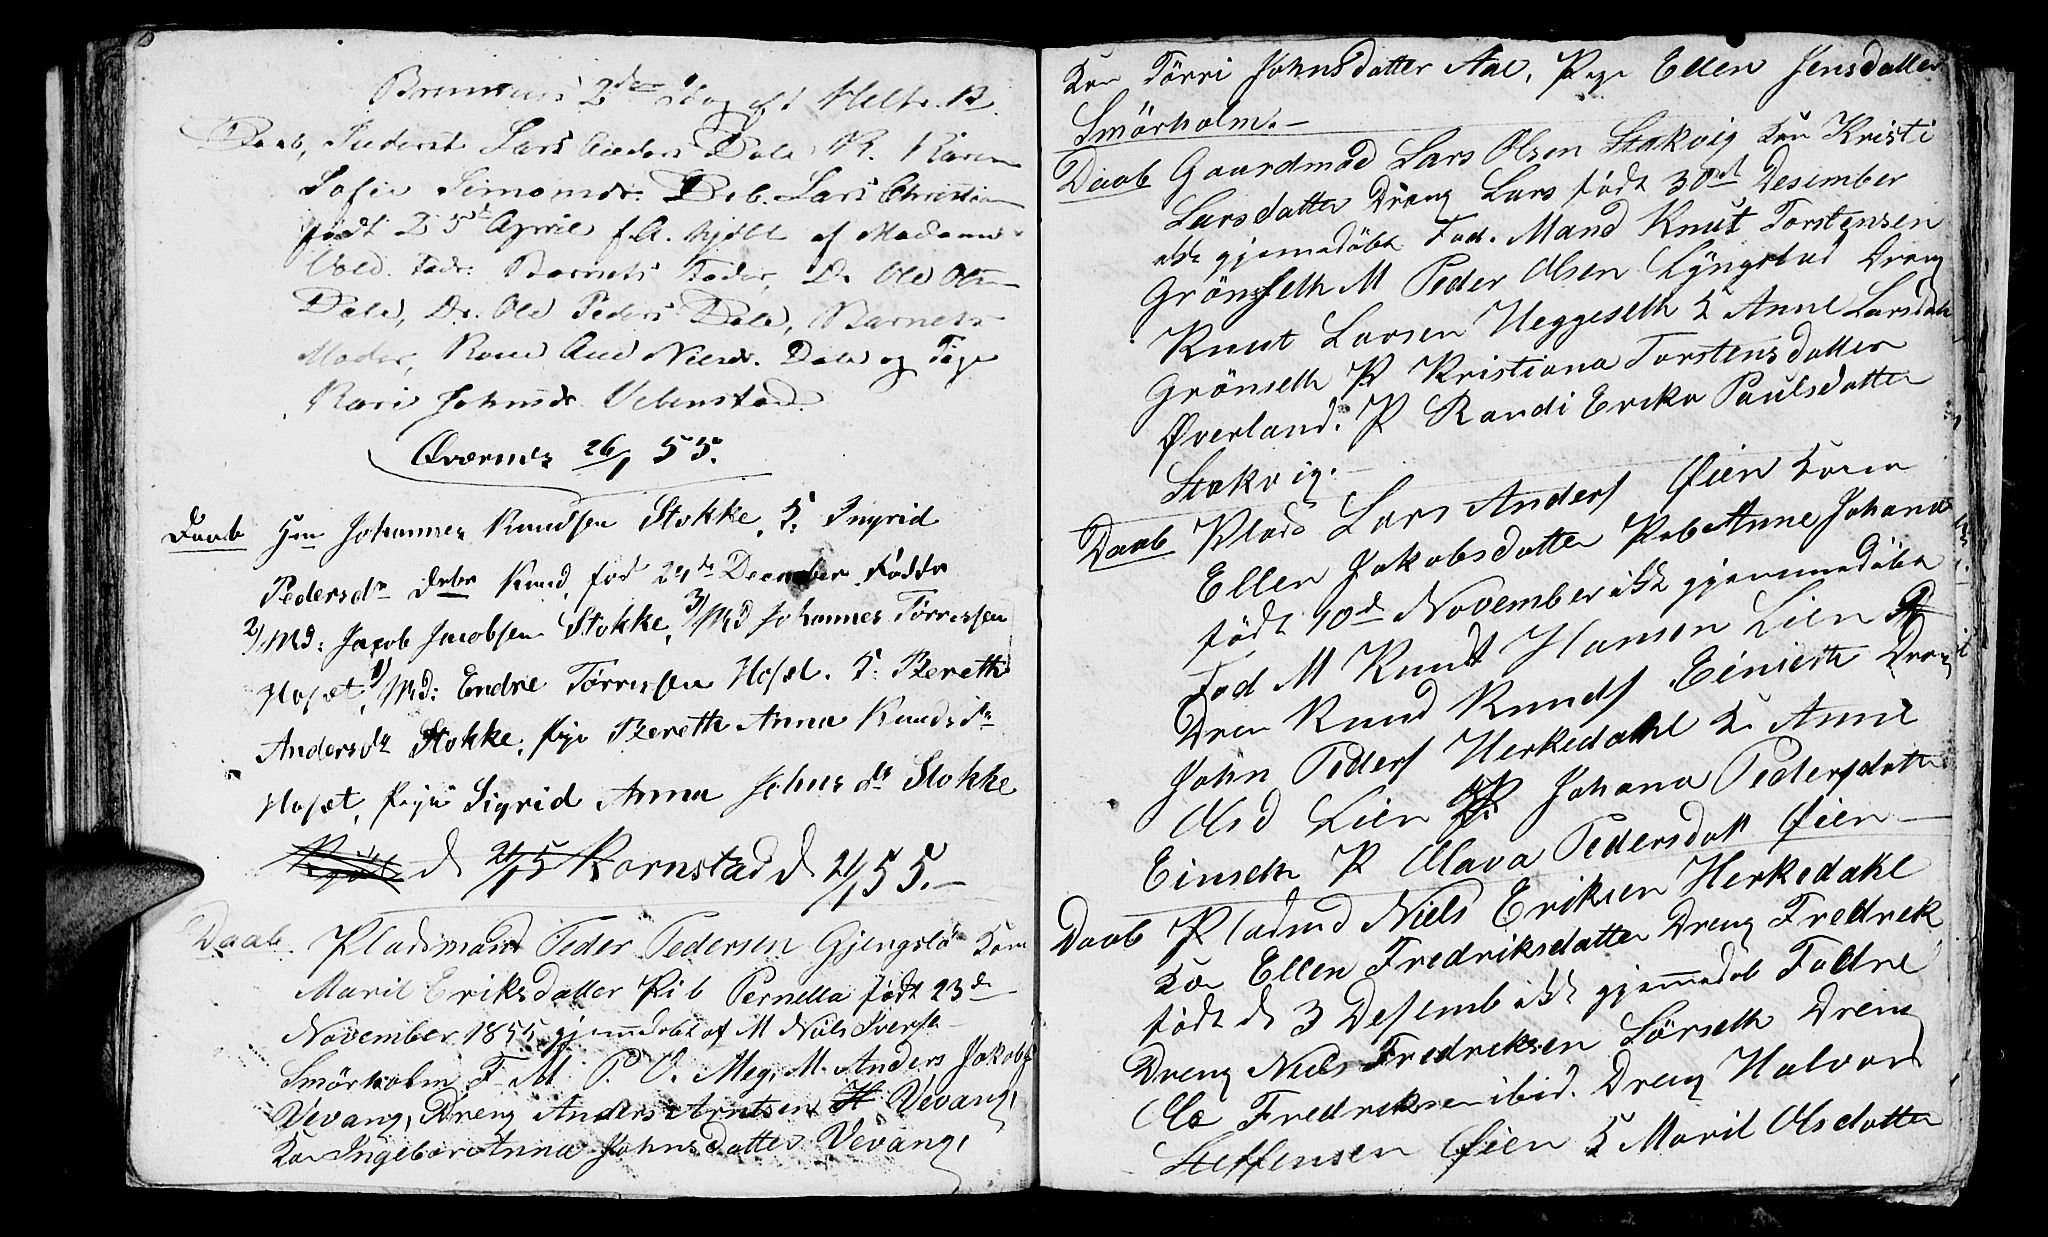 Bremsnes 2den Dag
Daab, Inderst Lars Anders Dale K. Karen
Sofie Simonsdr. Drb. Lars Christian
født 25de April f.A. hjdbt af Madame
Vold. Fadr: Barnets Fader, Dr Ole Ols
Dale, Dr. Ole Peders Dale, Barnets
Moder, Kone Ane Nilsdr. Dale og Pige
Kari Johnsdr Vebenstad.
Qværnes 26/1 55.
Daab Gm Johannes Knudsen Stokke, K. Ingrid
Pedersdr drbn Knud, fød 24de December Faddr
2/ Md: Jacob Jacobsen Stokke, 3/ Md Johannes Tørresen
Hoset, 1/ Md: Endre Tørresen Hoset. K. Bereth
Andersdr Stokke, pige Bereth Anna Knudsdr
Hoset, pige Sigrid Anna Johnsdr Stokke
d 21/1 5 Kornstad d 21/1 55.–
Daab. Pladsmand Peder Pedersen Gjengslø Kone
Marit Eriksdatter Pib Pernella født 23de
November 1855 gjemdøbt af M Niels Iversen
Smörholm F. M P. O. Meg, M. Anders Jakobs
Vevang, Dreng Anders Arntsen Vevang,
Kon Ingebor Anna Johnsdatter Vevang,
Kon Törri Johnsdatter Aae, Pige Ellen Jensdatter
Smörholm.–
Daab Gaardmad Lars Olsen Stakvig Kon Kristi
Larsdatter Dreng Lars født 30de Desember
ikke gjemedøbt Fad. Mand Knut Torstensen
Grönseth M Peder Olsen Lyngstad Dreng
Knut Larsen Heggeseth K Anne Larsdatt
Grönseth P Kristiana Torstensdatter
Øverland. P Randi Erika Paulsdatter
Stakvig.–
Daab Plads Lars Anders Øien Kone
Ellen Jakobsdatter Peb Anne Johana
født 10de November ikke gjemmedøbt
Fad M Knudt Hanson Lien
Dren Knud Knuds Einseth Dreng
John Peders Herkedahl K Anne
Olsd Lien P. Johana Pedersdatter
Einseth P Olava Pedersdatt Øien–
Daab Pladsmd Niels Eriksen Herkedahl
Kon Ellen Fredriksdatter Dreng Fredrek
født d 3 Desemb ikke gjemmedøb Fadre
Dreng Niels Fredreksen Sörseth Dreng
Ole Fredreksen ibid. Dreng Halvor
Steffensen Øien K Marit Olsdatter